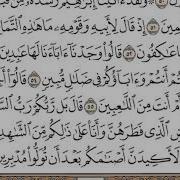 وَلَقَدْ ءَاتَيْنَآ إِبْرَٰهِيمَ رُشْدَهُۥ
إِذْ قَالَ لِأَبِيهِ وَقَوْمِهِۦ مَا هَٰذِهِ ٱلتَّمَا
عَٰكِفُونَ ٥٢ قَالُوا۟ وَجَدْنَآ ءَابَآءَنَا لَهَا عَٰبِدِينَ
كُنتُمْ أَنتُمْ وَءَابَآؤُكُمْ فِى ضَلَٰلٍ مُّبِينٍ ٥٤ قَالُوٓا۟
أَمْ أَنتَ مِنَ ٱللَّٰعِبِينَ ٥٥ قَالَ بَل رَّبُّكُمْ رَبُّ
ضِ ٱلَّذِى فَطَرَهُنَّ وَأَنَا۠ عَلَىٰ ذَٰلِكُم مِّنَ ٱلشَّٰهِدِ
لَأَكِيدَنَّ أَصْنَٰمَكُم بَعْدَ أَن تُوَلُّوا۟ مُدْبِرِينَ